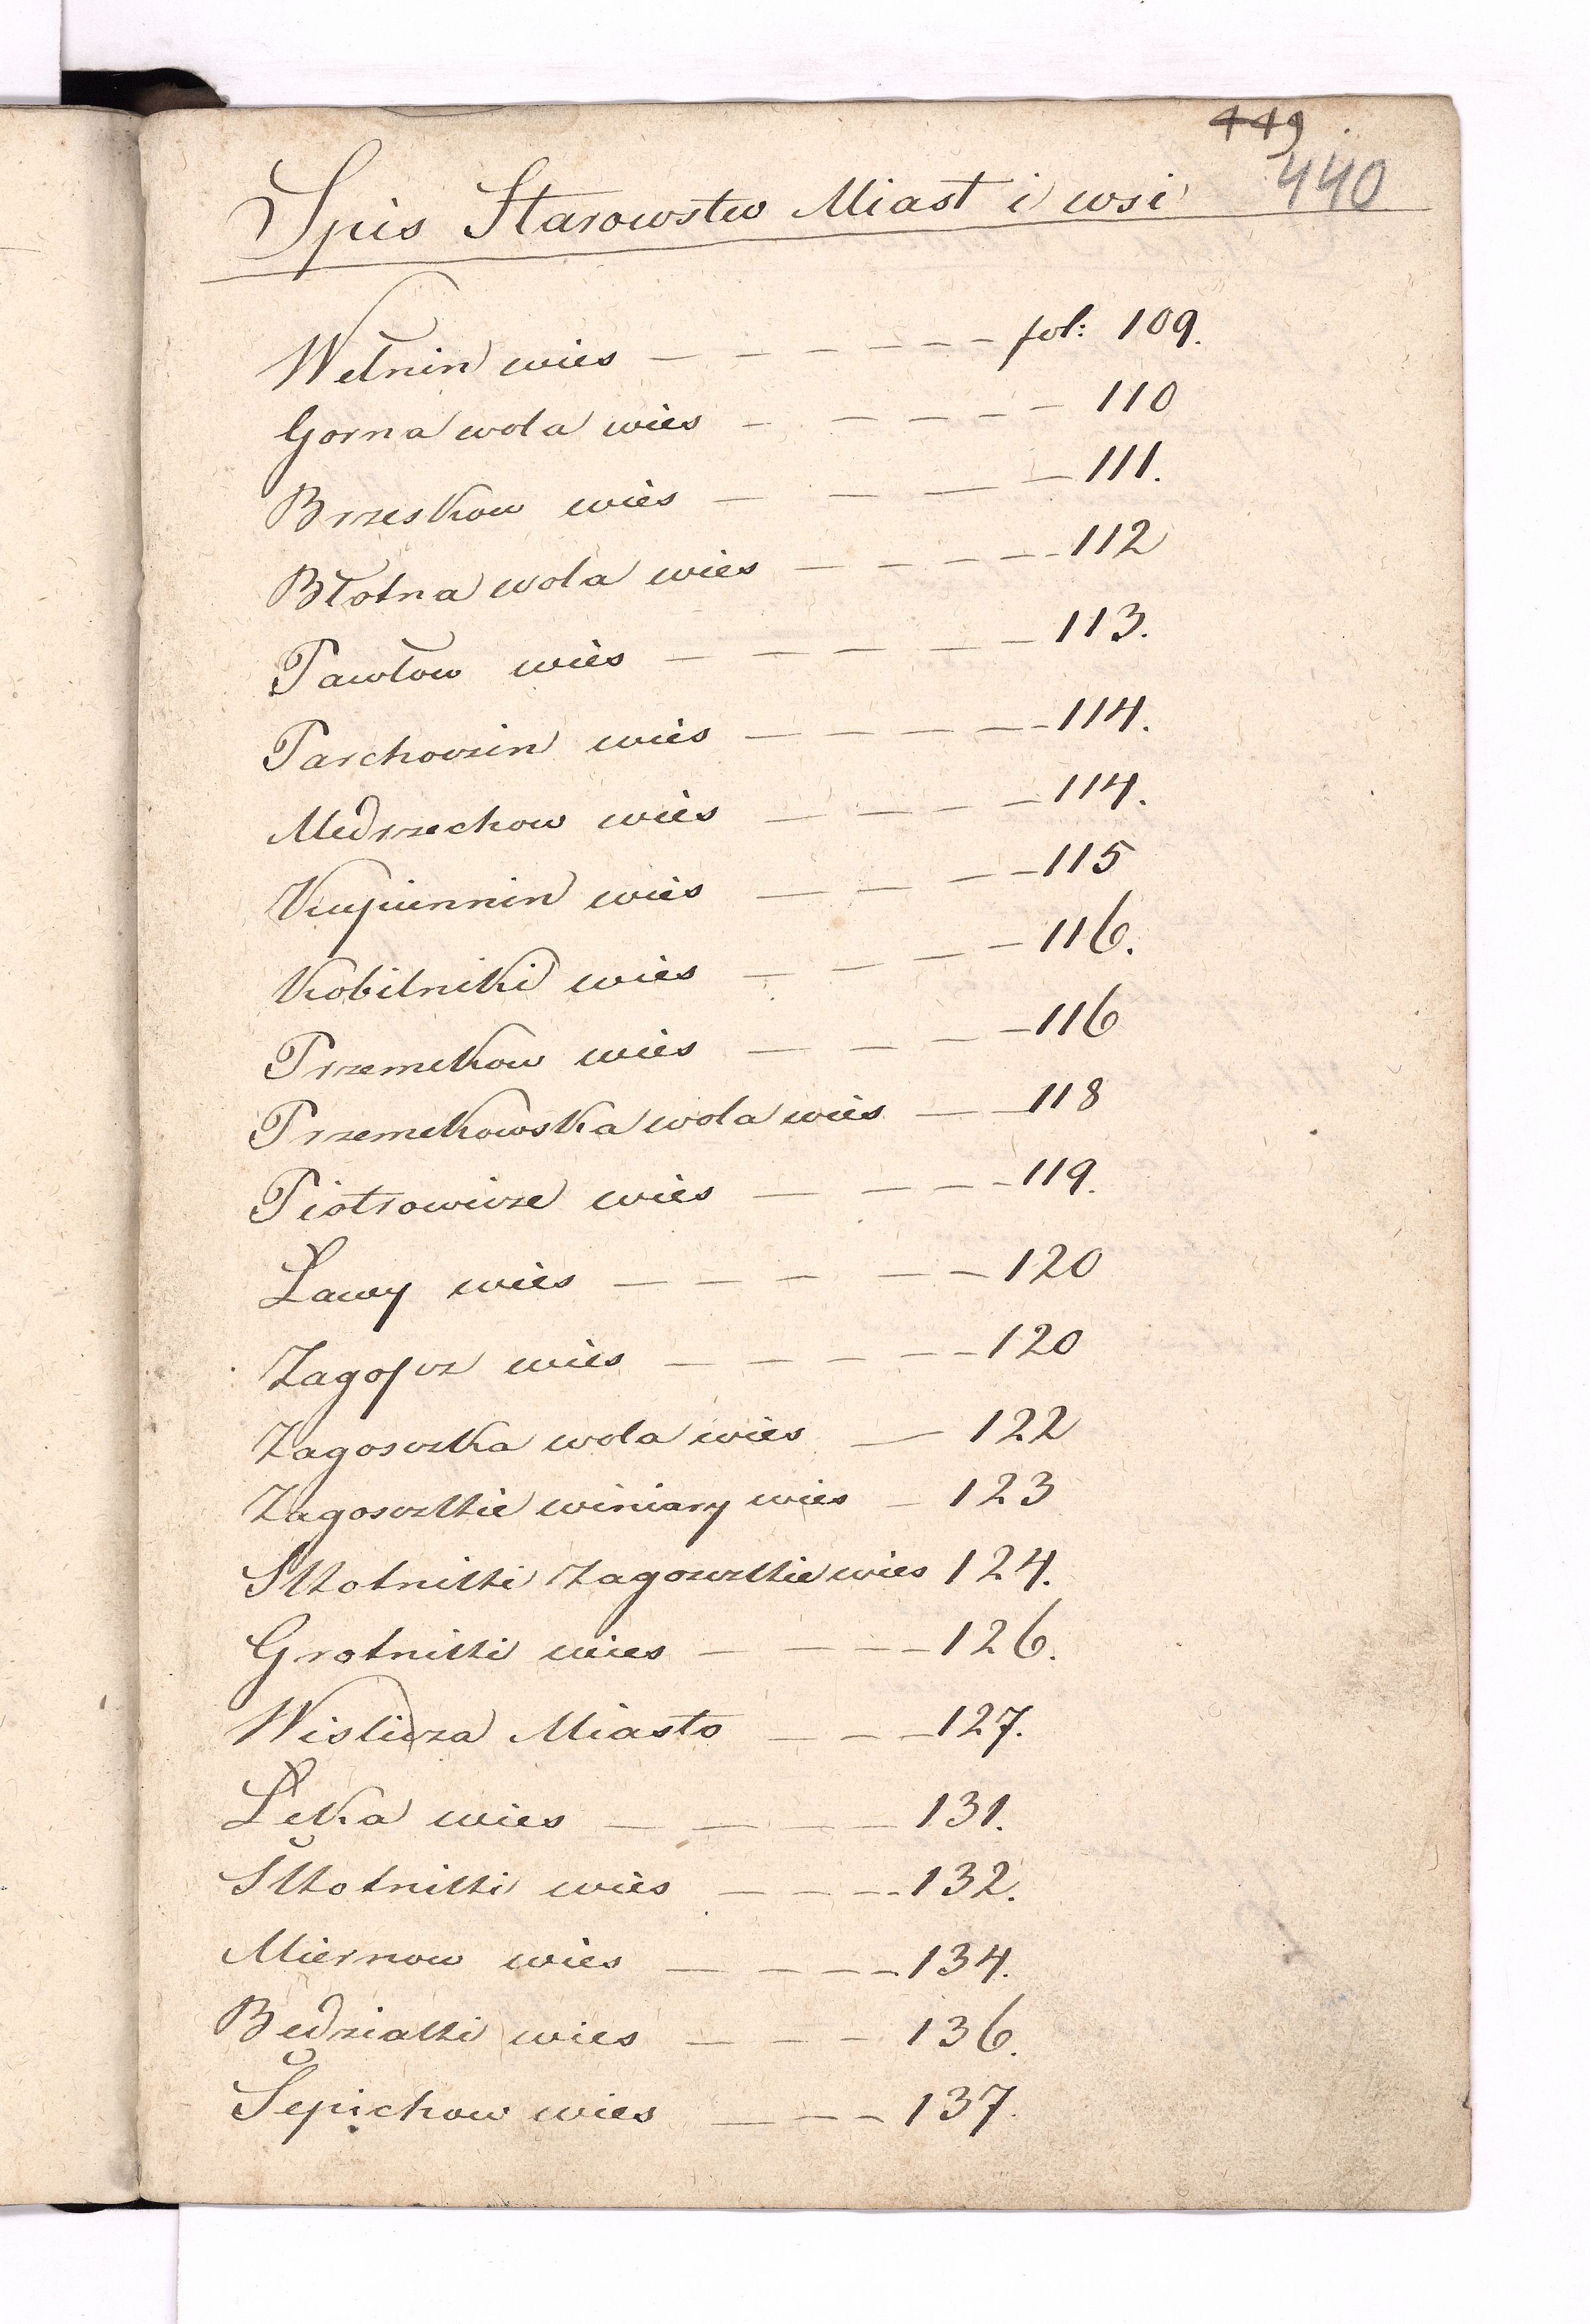 449
440
Spis Starowstw Miast i wsi
Wełnin wies — — — — — — fol: 109.
Gorna wola wies — — — — — 110
Brzeskow wies — — — — 111.
Błotna wola wies — — — — — 112
Pawłow wies — — — — — 113.
Parchoczin wies — — — — — 114.
Medrzechow wies — — — — — 114.
Kupiennin wies — — — — 115
Kobilniki wies — — — — 116.
Przemekow wies — — — — 116
Przemekowska wola wies — — 118
Piotrowicze wies — — — — 119.
Ławy wies — — — — — 120
Zagoscz wies — — — — — 120
Zagosczka wola wies — 122
Zagosczkie winiary wies — 123
Skotniki Zagosczkie wies 124.
Grotniki wies — — — — 126.
Wislicza Miasto — — — 127.
Łeka wies — — — — 131.
Skotniki wies — — — — 132.
Miernow wies — — — — 134.
Bedziaki wies — — — 136.
Sepichow wies — — — 137.